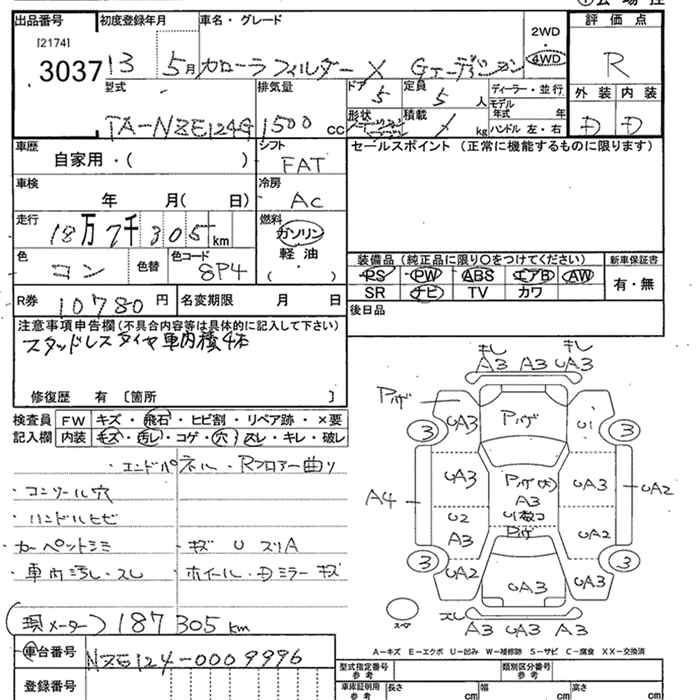 出品番号 初度登録年月 車名・グレード 評価点
[2174]
3037 13 5月 カローラフィルダー X Gエディション 2WD 4WD R
型式 排気量 ドア 定員 ディーラー・並行 外装 内装
5 5人 モデル年式 年
TA-NZE124G 1500cc 形状 積載 kg ハンドル 左・右 D D
車歴 シフト セールスポイント (正常に機能するものに限ります)
自家用・( ) FAT
車検 冷房
年 月( 日) AC
走行 燃料
18万7千305km ガソリン
色 色替 色コード 軽油 装備品(純正品に限り○をつけてください) 新車保証書
コン 8P4 ( ・ ) PS PW ABS エアB AW 有・無
R券 10780円 名変期限 月 日 SR ナビ TV カワ
後日品
注意事項申告欄(不具合内容等は具体的に記入して下さい)
スタッドレスタイヤ車内積4本
修復歴 有 〔箇所 〕
検査員 FW キズ・飛石・ヒビ割・リペア跡・×要
記入欄 内装 キズ・汚レ・コゲ・穴・スレ・キレ・破レ
・エンドパネル・Rフロアー曲り
・コンソール穴
・ハンドルヒビ
・カーペットシミ ・キズ U スリA
・車内汚レ・スレ ・ホイール・Dミラーキズ
(現メーター) 187305km
車台番号 NZE124-0009996
登録番号
キレ キレ
A3 A3 UA3
Pハゲ
UA3 Pハゲ U1
3 3
UA3 Pハゲ(大) UA3
A3
A4 U2 U1数コ UA2
A3 Pハゲ UA2
3 3
UA2 UA3 UA3
スペア スレ
A3 UA3 A3
A-キズ E-エクボ U-凹み W-補修跡 S-サビ C-腐食 XX-交換済
型式指定番号 参考 類別区分番号 参考
車庫証明用 参考 長さ cm 幅 cm 高さ cm